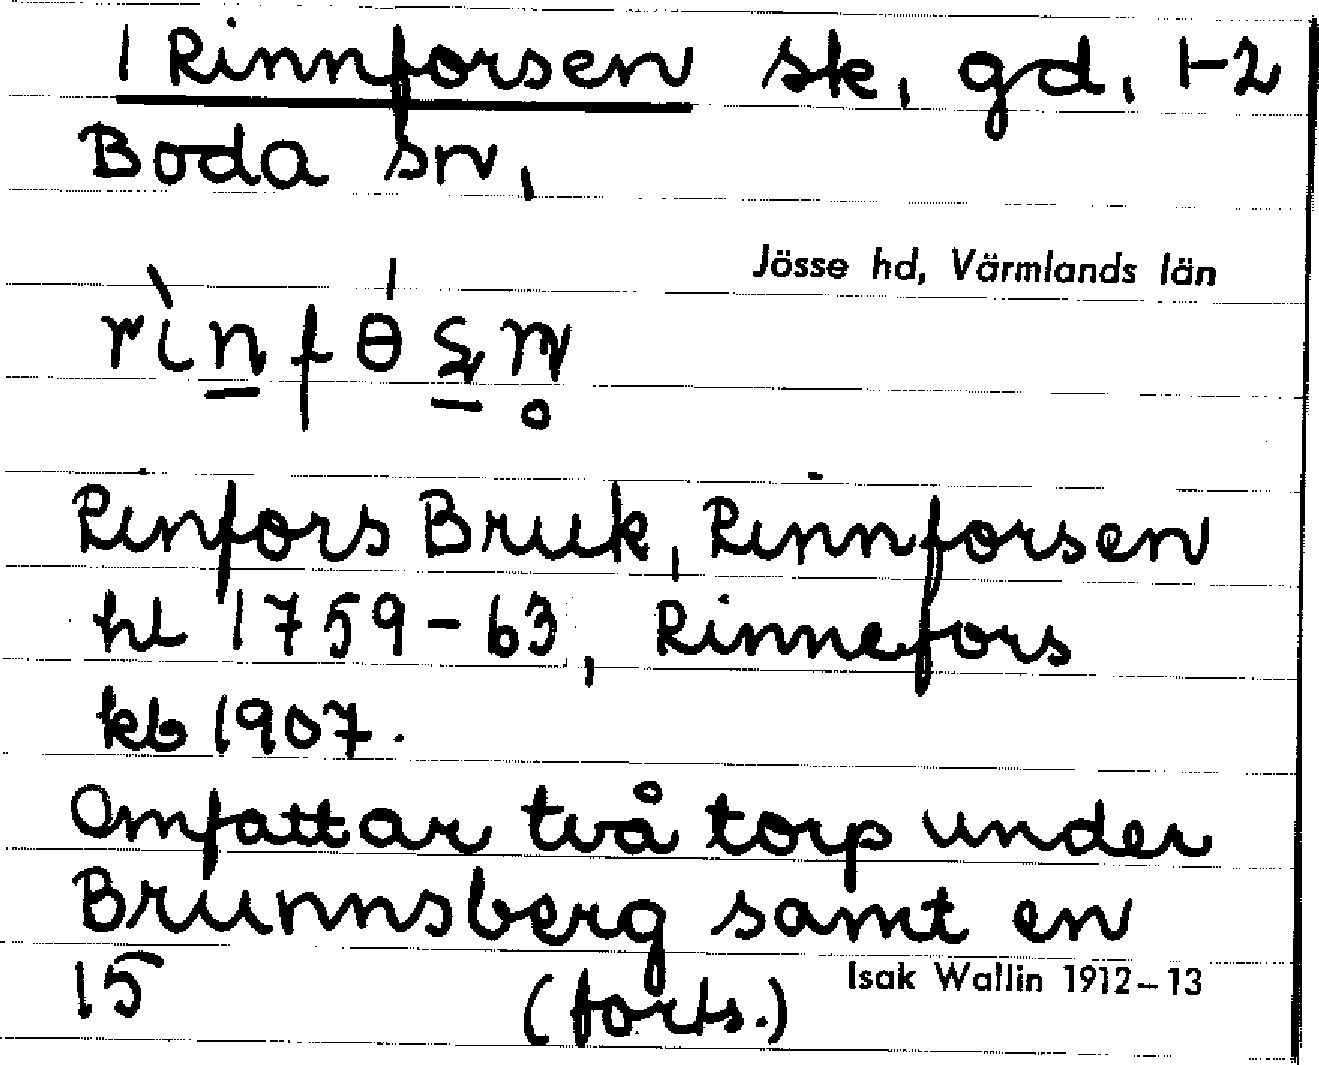 1 Rinnforsen sk. gd. 1-2
Boda sn,
Jösse hd, Värmlands län
Rinfors Bruk, Rinnforsen
hl 1759-63, Rinnefors
kb 1907.
Omfattar två torp under
Brunnsberg samt en
15 (forts.) Isak Wallin 1912–13